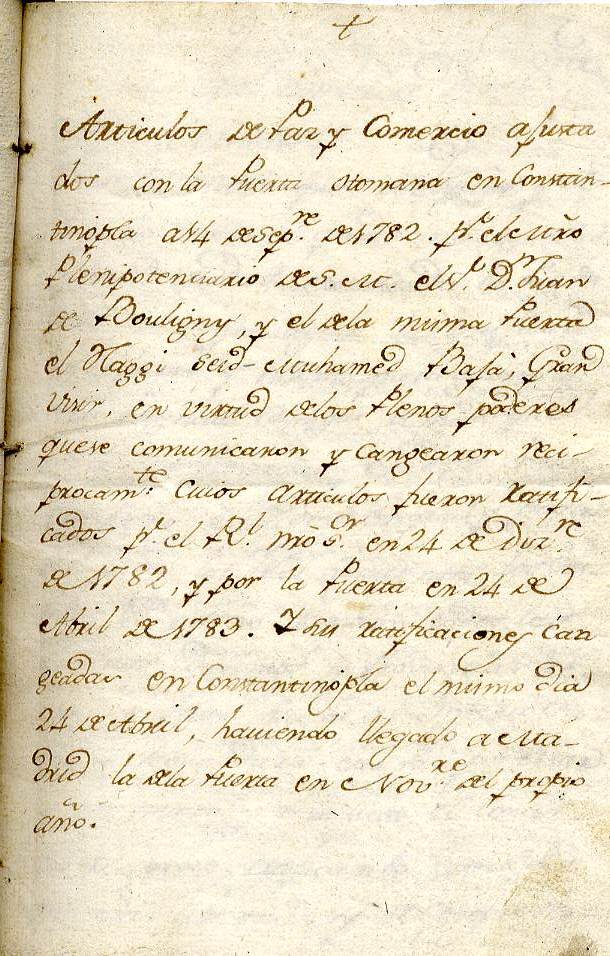 +
Articulos de Paz y Comercio ajusta
dos con la Puerta Otomana en Constan-
tinopla a 14 de Sep.re de 1782. p.r el Mñro
Plenipotenciario de S. M. el S.r D.n Juan
de Bouligny, y el de la misma Puerta
el Haggi Seid-Muhamed Bassà, Gran
Visir, en virtud de los Plenos poderes
que se comunicaron y Cangearon reci-
procam.te Cuios Articulos fueron Ratifi-
cados p.r el R.l nrõ S.r en 24 de Diz.re
de 1782, y por la Puerta en 24 de
Abril de 1783. Y sus ratificaciones Can
geadas en Constantinopla el mismo dia
24 de Abril, haviendo llegado a Ma-
drid la de la Puerta en Nov.re del propio
año.